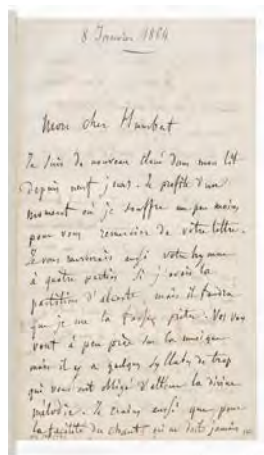 8 Janvier 1864
Mon cher Humbert
Je suis de nouveau cloué dans mon lit
depuis neuf jours. Je profite d'un
moment où je souffre un peu moins
pour vous remercier de votre lettre.
Je vous renverrais aussi votre hymne
à quatre parties si j'avais la
partition d'Alceste mais il faudra
que je me la fasse prêter. Vos vers
vont à peu près sur la musique
mais il y a quelques syllabes de trop
qui vous ont obligé d'altérer la divine
mélodie. Je crains aussi que pour
la facilité du chant on ne doive jamais